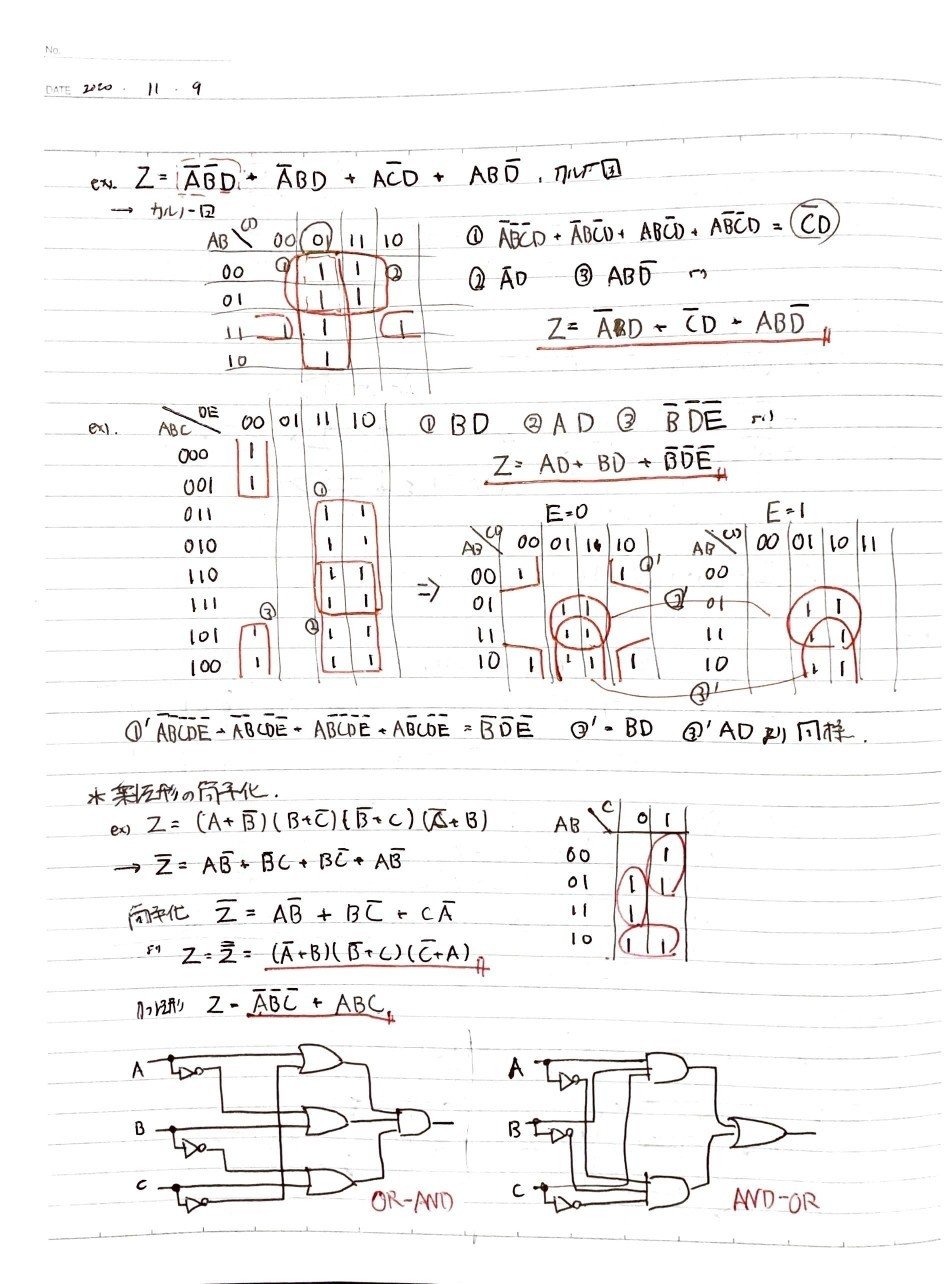 No.
DATE 2020 · 11 · 9
ex. Z = A̅B̅D + A̅BD + AC̅D + ABD̅ . カルノー図
→ カルノー図
AB\CD 00 01 11 10
00 ① 1 1 ②
01 1 1
11 1 1 1
10 1
① A̅B̅C̅D + A̅BC̅D + ABC̅D + AB̅C̅D = C̅D
② A̅D ③ ABD̅ より
Z = A̅D + C̅D + ABD̅
ex). ABC\DE 00 01 11 10
000 1
001 1
①
011 1 1
010 1 1
110 1 1
111 1 1
③ ②
101 1 1 1
100 1 1 1
① BD ② AD ③ B̅D̅E̅ より
Z = AD + BD + B̅D̅E̅
⇒
E=0
AB\CD 00 01 11 10
00 1 1 ①'
01 1 1 ②'
11 1 1
10 1 1 1 1
③'
E=1
AB\CD 00 01 10 11
00
01 1 1
11 1 1
10 1 1
①' A̅B̅C̅D̅E̅ + A̅B̅CD̅E̅ + AB̅C̅D̅E̅ + AB̅CD̅E̅ = B̅D̅E̅ ②' = BD ③' AD より 同様.
* 乗法形の簡単化.
ex) Z = (A+B̅)(B+C̅)(B̅+C)(A̅+B)
→ Z̅ = AB̅ + B̅C + BC̅ + AB̅
簡単化 Z̅ = AB̅ + BC̅ + CA̅
より Z = Z̿ = (A̅+B)(B̅+C)(C̅+A)
AB\C 0 1
00 1
01 1 1
11 1
10 1 1
加法形 Z = A̅B̅C̅ + ABC
A
B
C
OR-AND
A
B
C
AND-OR